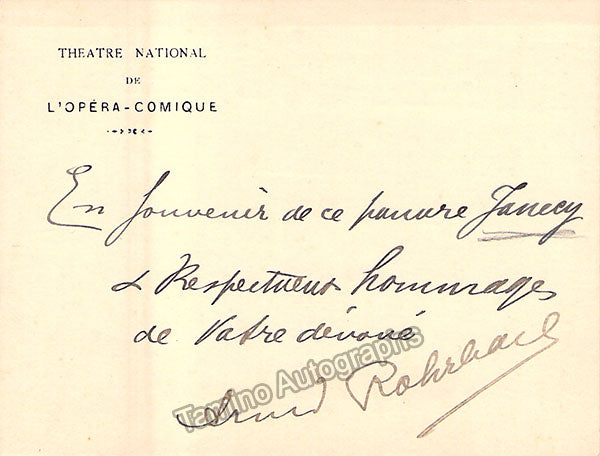 THEATRE NATIONAL
DE
L'OPÉRA-COMIQUE
En Souvenir de ce pauvre
& Respectueux hommages
de Votre dévoué
Rohrbach
Tamino Autographs